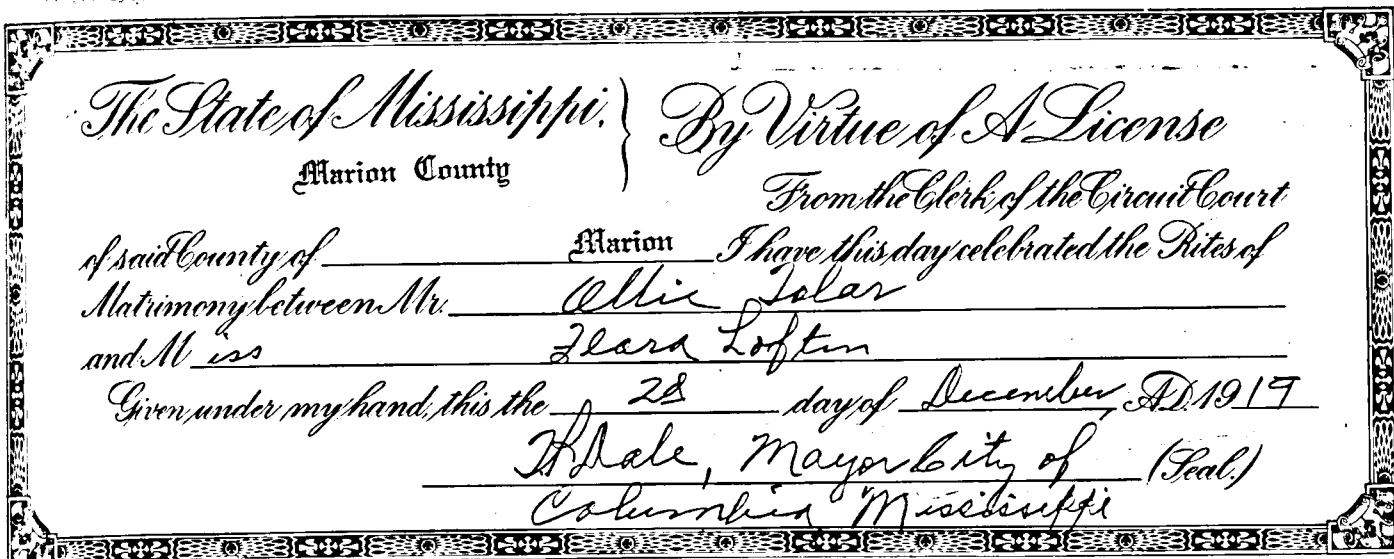 The State of Mississippi.
Marion County
By Virtue of A License
From the Clerk of the Circuit Court
of said County of Marion I have this day celebrated the Rites of
Matrimony between Mr. Ollie Tolar
and Miss Loftin
Given under my hand, this the 28 day of December, A.D. 1919
Dale, Mayor City of (Seal.)
Columbia Mississippi